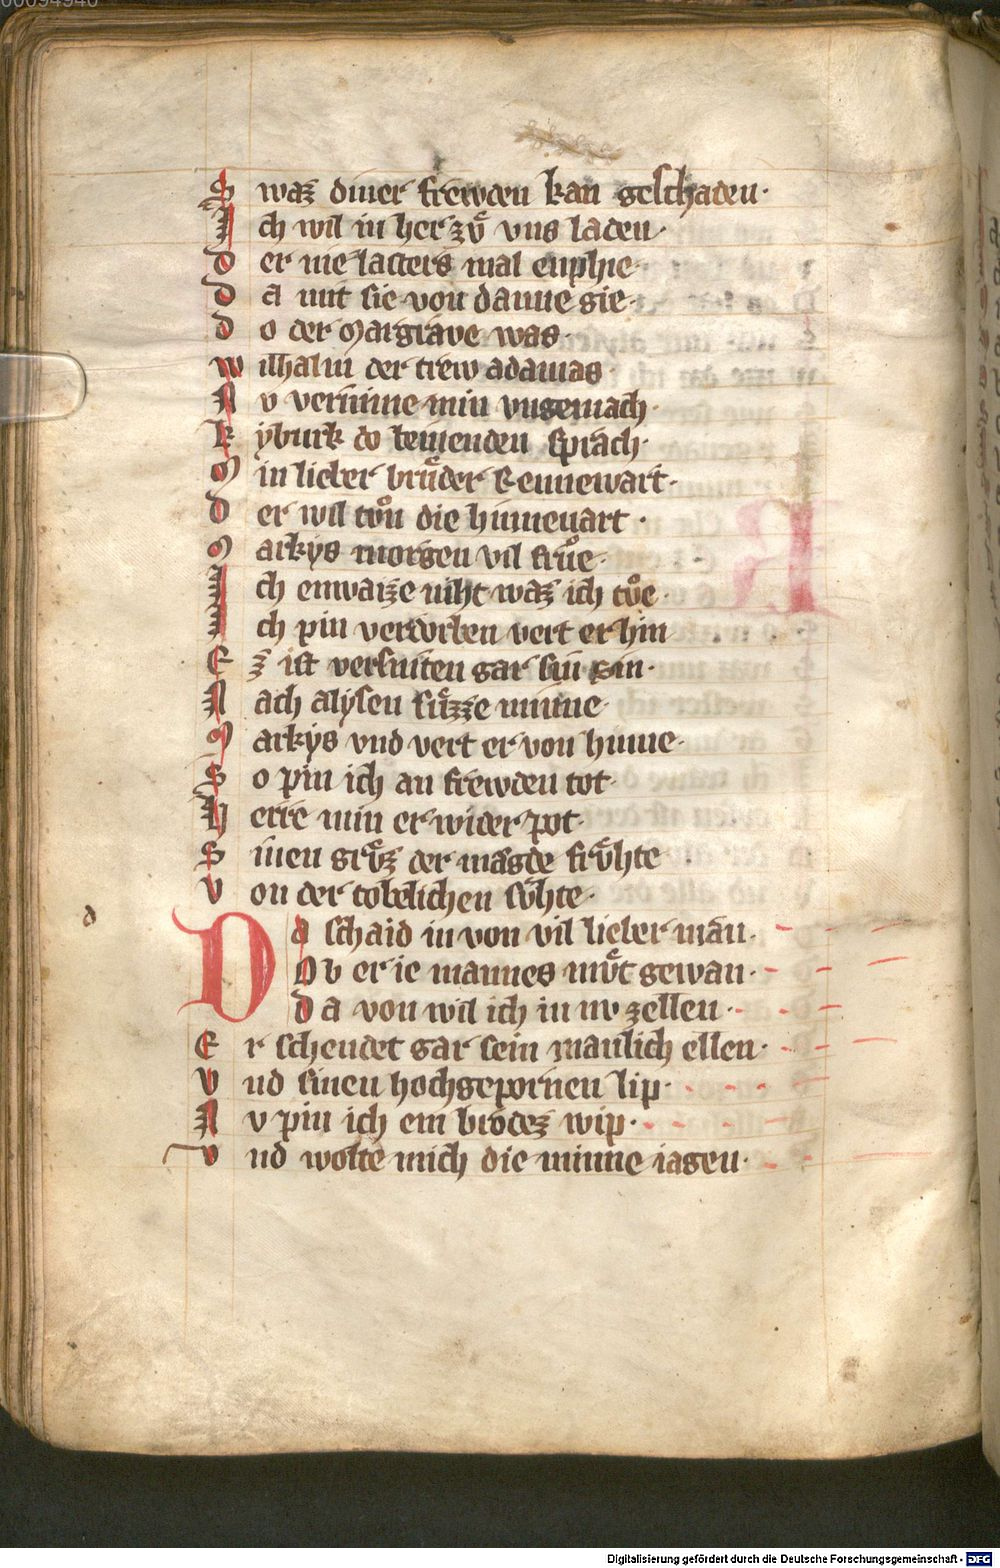 S waz diner frewden kan geschaden·
I ch wil in her zuͦ vns laden·
d er nie lasters mal enphie·
d a mit sie von danne gie·
d o der Margrave was·
w illhalm der trew adamas·
N v vernime min vngemach·
K yburk do weinenden sprach·
M in lieber bruͤder Rennewart·
d er wil tvͦn die hinneuart·
M arkys morgen vil fruͤe·
I ch enwaize niht waz ich tvͤe·
I ch pin verdorben vert er hin
E z ist versniten gar sin sin·
N ach alysen suͤzze minne
M arkys vnd vert er von hinne·
S o pin ich an frewden tot·
H erre min er wider pot·
S inen gruͤz der magde fruͤhte
V on der tobelichen suͤhte·
D a schaid in von vil lieber man·
O b er ie mannes muͤt gewan·
d a von wil ich in nv zellen·
E r schendet gar sein manlich ellen·
V nd sinen hochgepornen lip·
N v pin ich ein brodez wip·
V nd wolte mich die minne iagen·
d
Digitalisierung gefördert durch die Deutsche Forschungsgemeinschaft - DFG